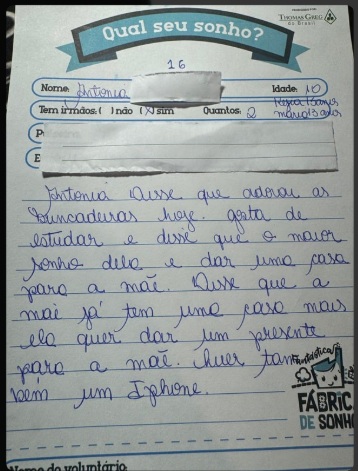 Qual seu sonho?
THOMAS GREG
do Brasil
16
Nome: Antonia Idade: 10
Tem irmãos: ( ) não (X) sim Quantos: 2 13 anos
maria 13 anos
P
E
Antonia Disse que adorou as
brincadeiras hoje. gosta de
estudar e disse que o maior
sonho dela e dar uma casa
para a mãe. Disse que a
mãe já tem uma casa mais
ela quer dar um presente
para a mãe. Quer tam
bém um Iphone.
Fantástica
FÁBRIC
DE SONH
Nome do voluntário: